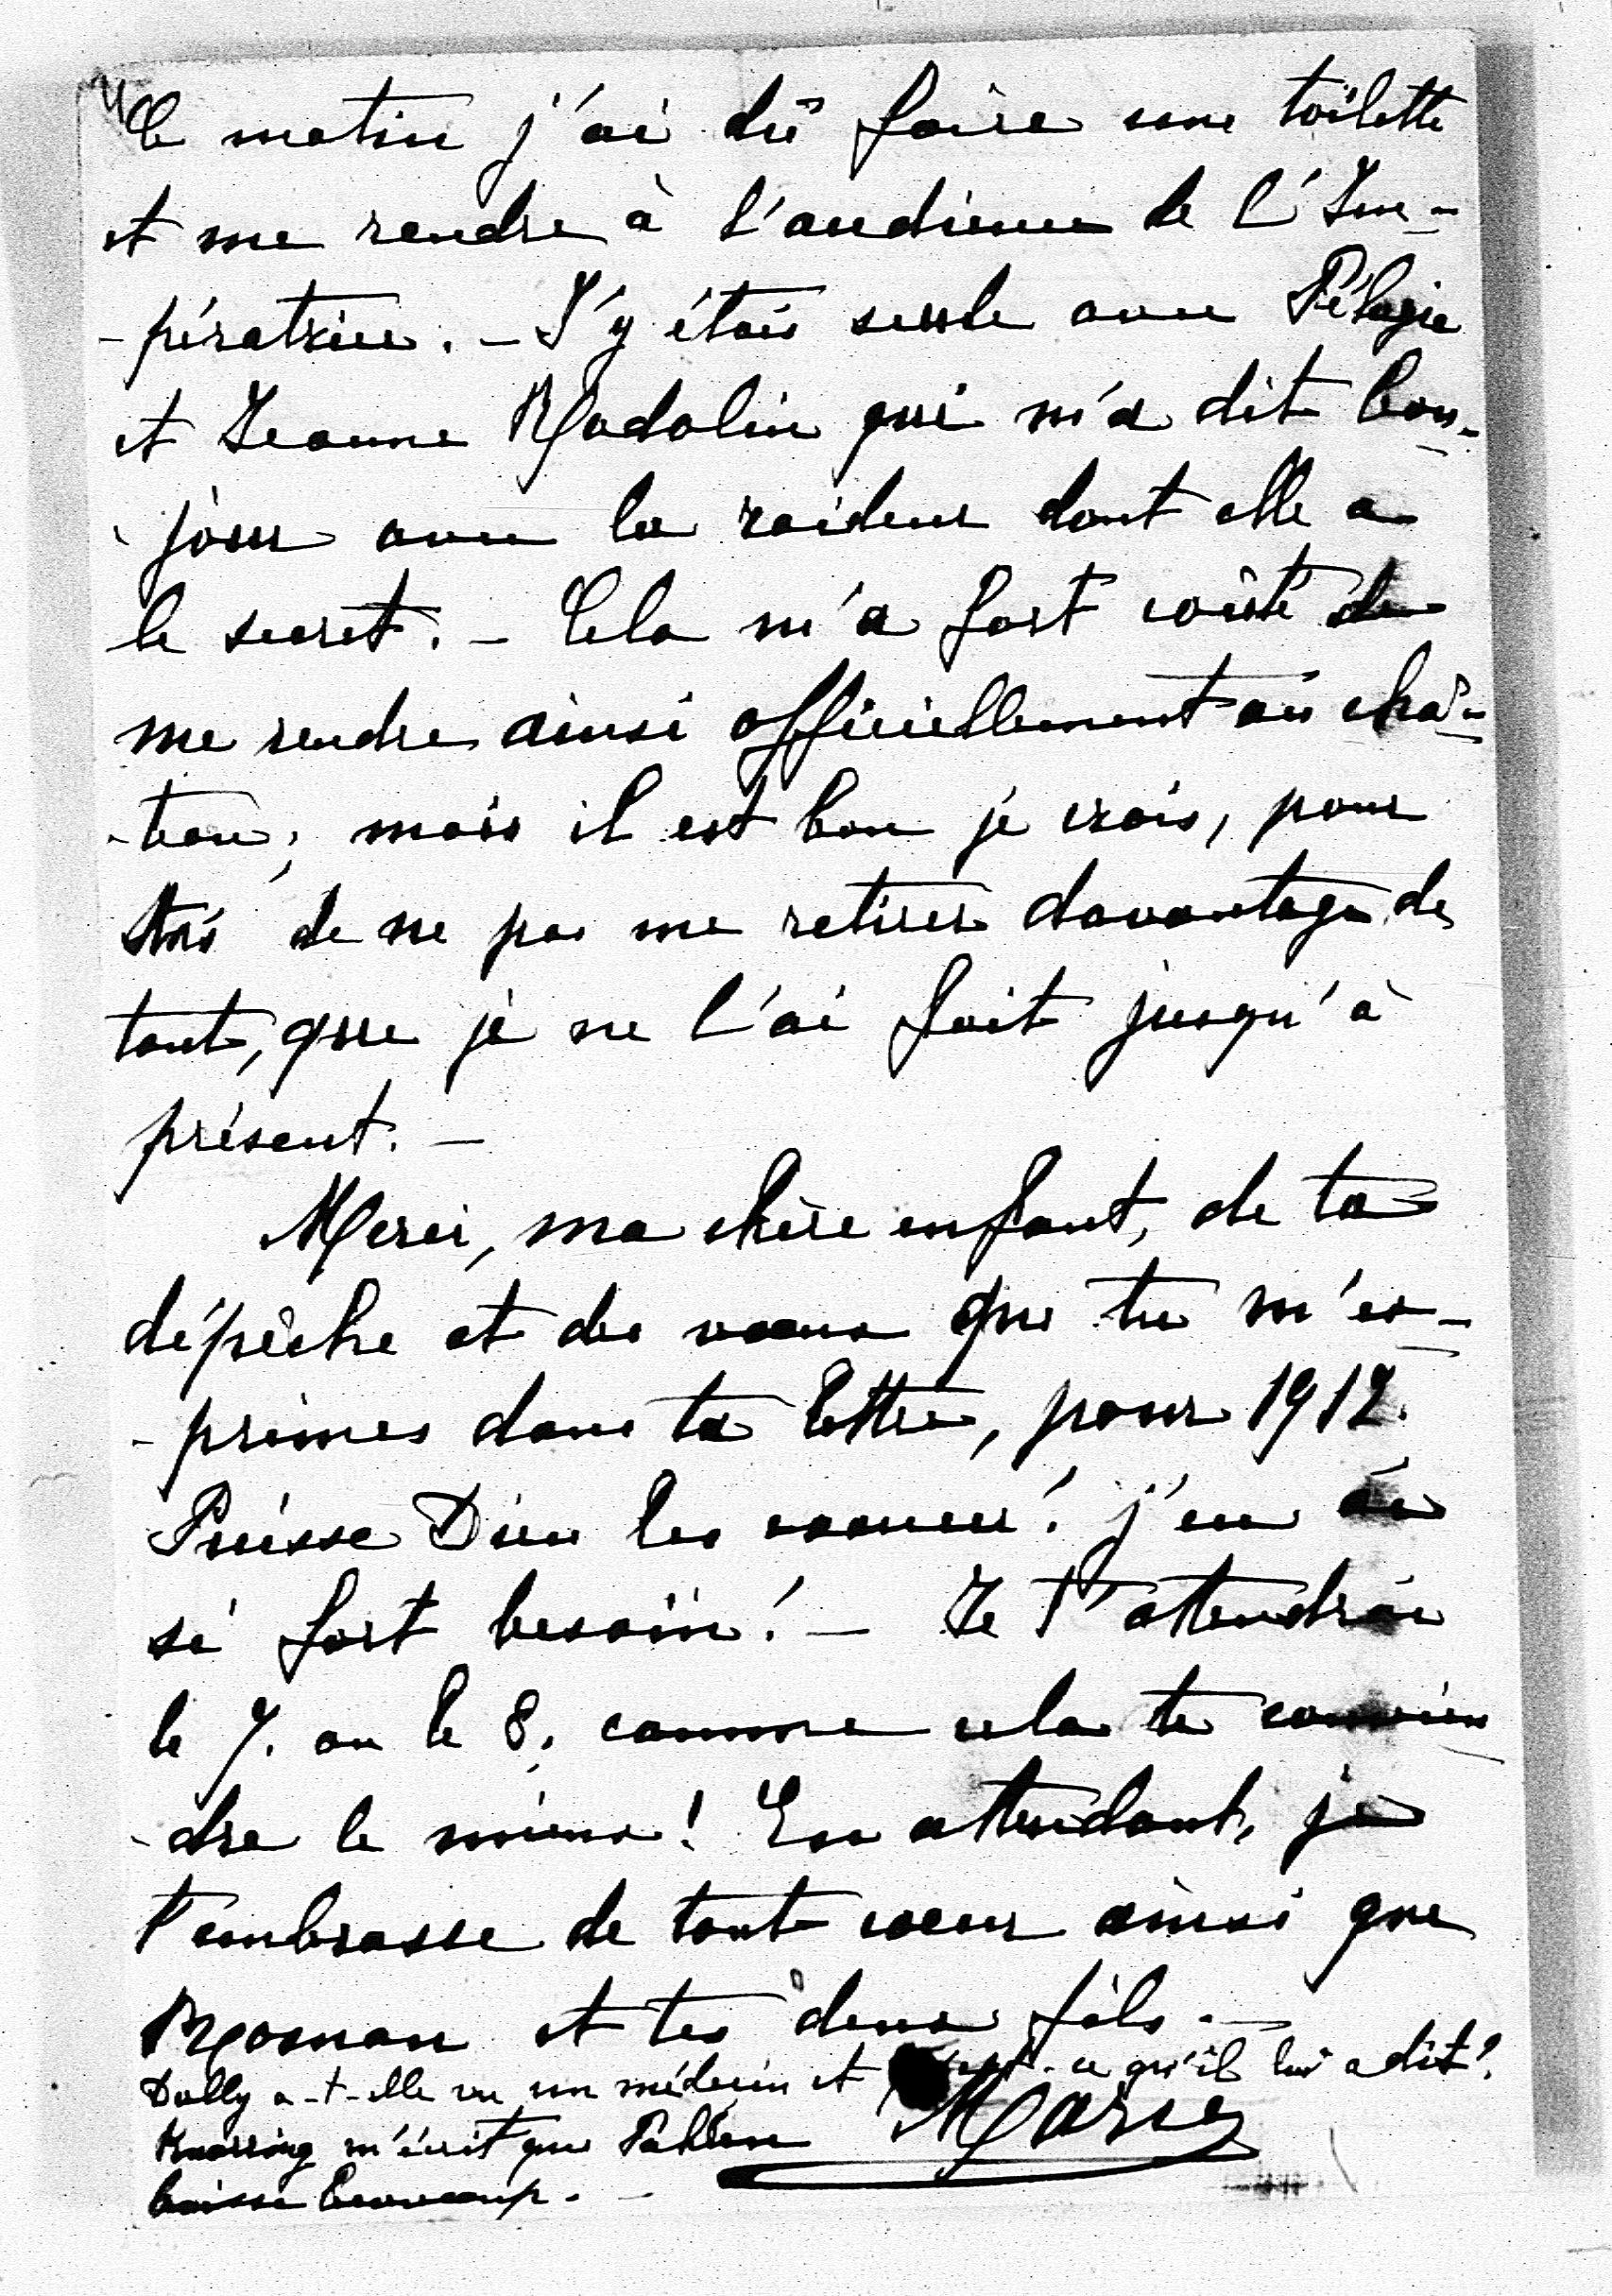 Ce matin j'ai dû faire une toilette
et me rendre à l'audience de l'Im-
-pératrice. - J'y étais seule avec Pélagie
et Jeanne Madolin qui m'a dit bon-
-jour avec la raideur dont elle a
le secret. - Cela m'a fort coûté de
me rendre ainsi officiellement au châ-
-teau; mais il est bon je crois, pour
de ne pas me retirer davantage de
tout, que je ne l'ai fait jusqu'à
présent. -
Merci, ma chère enfant, de ta
dépêche et des voeux que tu m'ex-
-primes dans ta lettre, pour 1912.
Puisse Dieu les! j'en ai
si fort besoin! - Je t'attendrai
le 7. ou le 8, comme cela te convien
-dra le mieux! En attendant, je
t'embrasse de tout coeur ainsi que
et tes deux fils. -
Dolly a-t-elle vu un médecin et ce qu'il lui a dit?
Knorring m'écrit que Pahlen Marie
baisse beaucoup. -